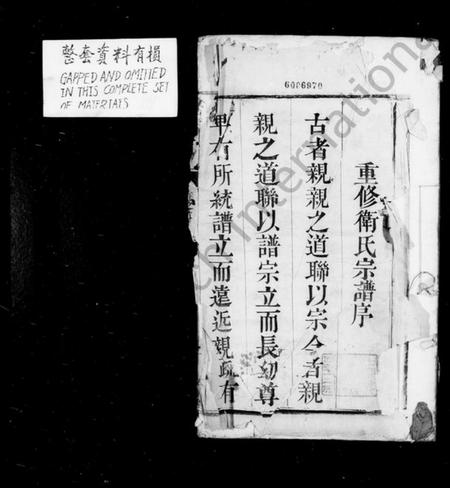 整套資料有損
GAPPED AND OMITTED
IN THIS COMPLETE SET
OF MATERIALS
6006970
重修衛氏宗譜序
古者親親之道聯以宗今者親
親之道聯以譜宗立而長幼尊
卑有所統譜立而遠近親疏有